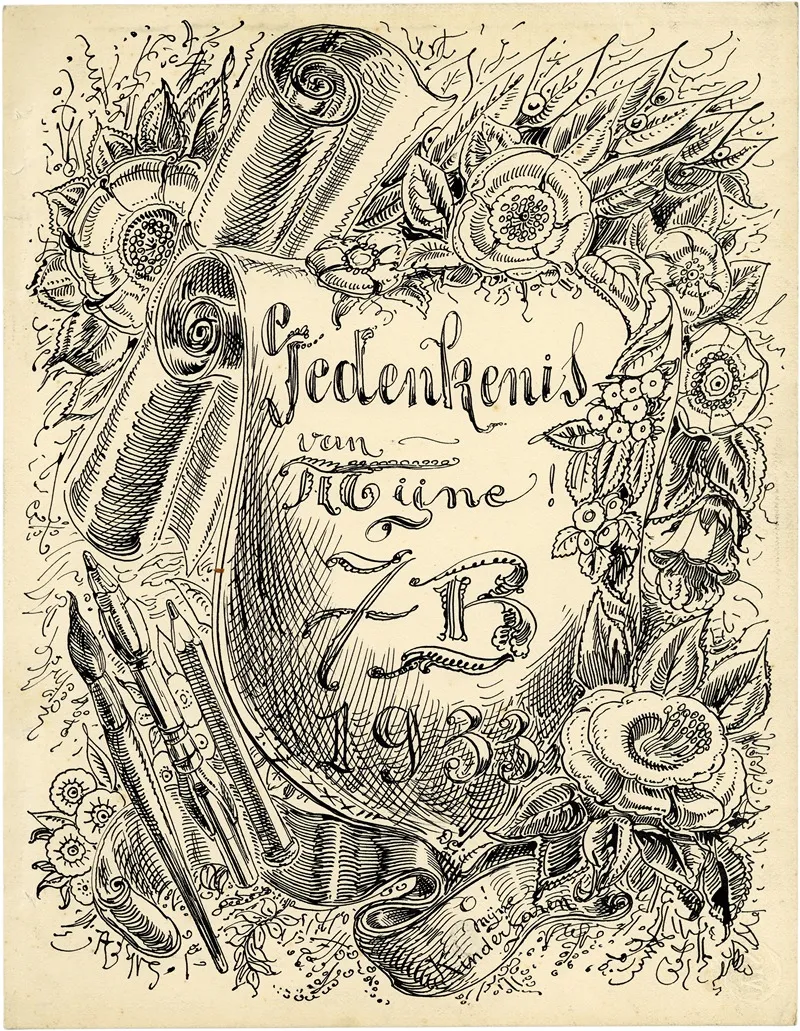 Gedenkenis
van
Mijne!
7 B
1933
O!
mijne
Kinderjaren